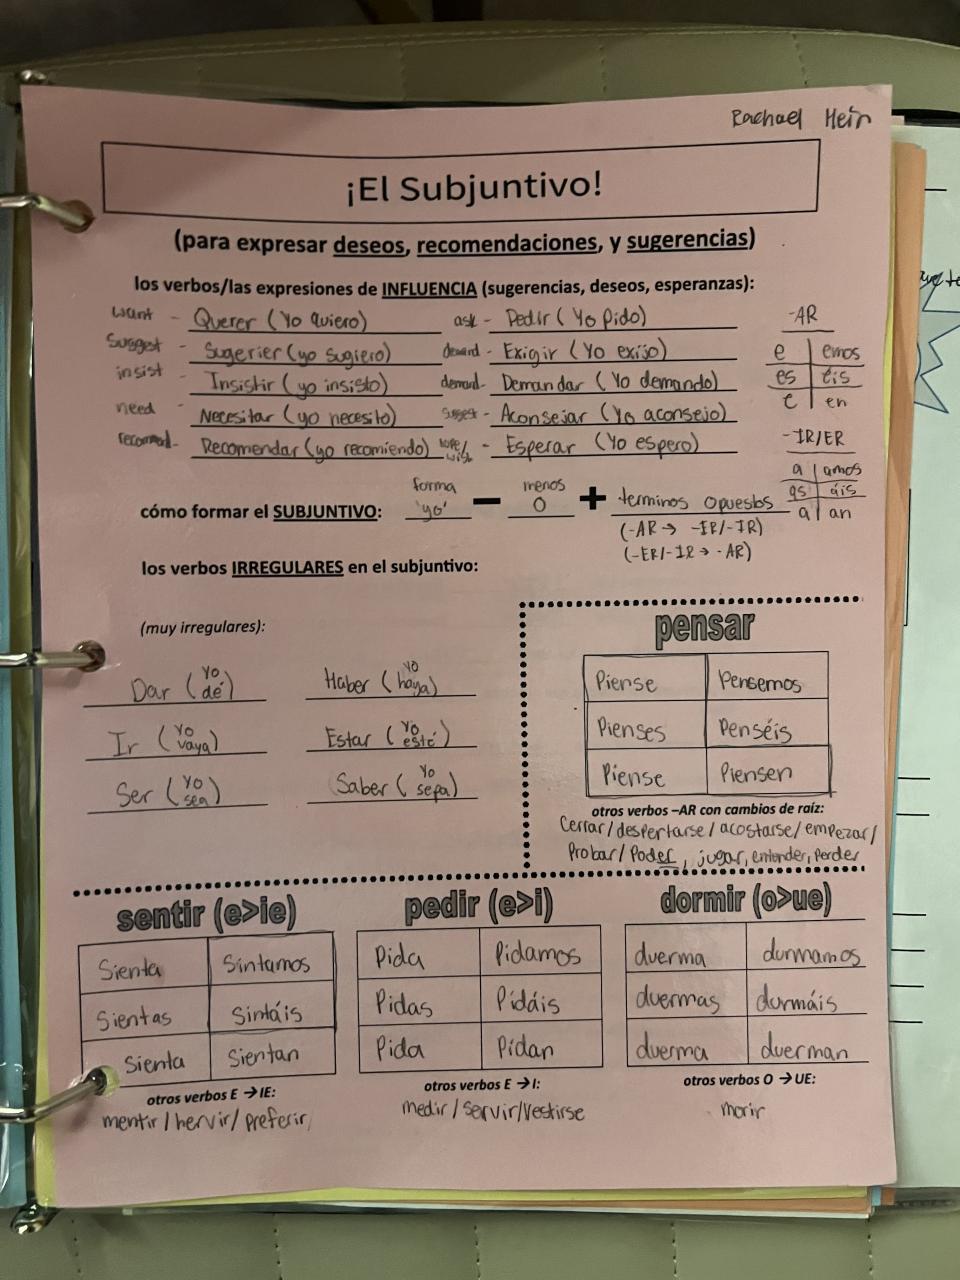 Rachael Hein
¡El Subjuntivo!
(para expresar deseos, recomendaciones, y sugerencias)
los verbos/las expresiones de INFLUENCIA (sugerencias, deseos, esperanzas):
want - Querer (Yo quiero) ask - Pedir (Yo pido)
suggest - Sugerier (yo sugiero) demand - Exigir (Yo exijo)
insist - Insistir (yo insisto) demand - Demandar (Yo demando)
need - Necesitar (yo necesito) suggest - Aconsejar (Yo aconsejo)
recomend - Recomendar (yo recomiendo) hope/wish - Esperar (Yo espero)
-AR
e emos
es éis
e en
-IR/ER
a amos
as áis
a an
cómo formar el SUBJUNTIVO: forma 'yo' − menos O + terminos opuestos
(-AR → -ER/-IR)
(-ER/-IR → -AR)
los verbos IRREGULARES en el subjuntivo:
(muy irregulares):
Dar (yo dé) Haber (yo haya)
Ir (yo vaya) Estar (yo esté)
Ser (yo sea) Saber (yo sepa)
pensar
Piense Pensemos
Pienses Penséis
Piense Piensen
otros verbos –AR con cambios de raíz:
Cerrar/despertarse/acostarse/empezar/
Probar/Poder, jugar, entender, perder
sentir (e>ie)
Sienta Sintamos
Sientas Sintáis
Sienta Sientan
otros verbos E → IE:
mentir/hervir/preferir
pedir (e>i)
Pida Pidamos
Pidas Pidáis
Pida Pidan
otros verbos E → I:
medir/servir/vestirse
dormir (o>ue)
duerma durmamos
duermas durmáis
duerma duerman
otros verbos O → UE:
morir